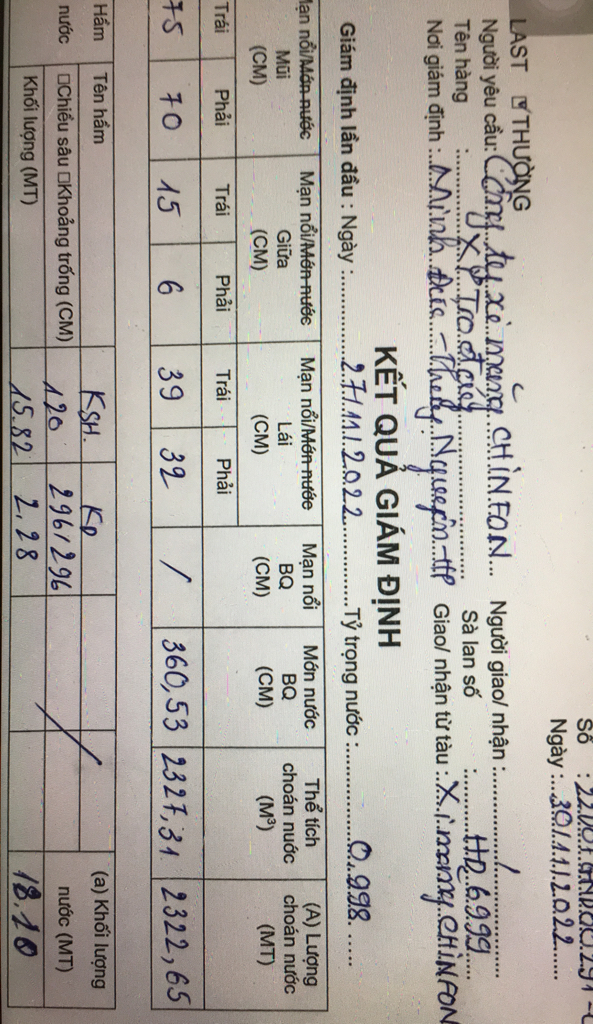 Số : 
Ngày : 30/11/2022
LAST ☑ THƯỜNG
Người yêu cầu: Công ty xi măng CHINFON Người giao/ nhận : /
Tên hàng : Sà lan số : HD 6999
Nơi giám định : Minh Đức - Thủy Nguyên - HP Giao/ nhận từ tàu : Xi măng CHINFON
KẾT QUẢ GIÁM ĐỊNH
Giám định lần đầu : Ngày : 27/11/2022 Tỷ trọng nước : 0.998
Mạn nổi/Mớn nước Mũi (CM) Mạn nổi/Mớn nước Giữa (CM) Mạn nổi/Mớn nước Lái (CM) Mạn nổi BQ (CM) Món nước BQ (CM) Thể tích choán nước (M³) (A) Lượng choán nước (MT)
Trái Phải Trái Phải Trái Phải
75 70 15 6 39 32 / 360,53 2327,31 2322,65
Hầm nước Tên hầm KSH. KP (a) Khối lượng nước (MT)
☐Chiều sâu ☐Khoảng trống (CM) 120 296/296
Khối lượng (MT) 15.82 2,28 18.10